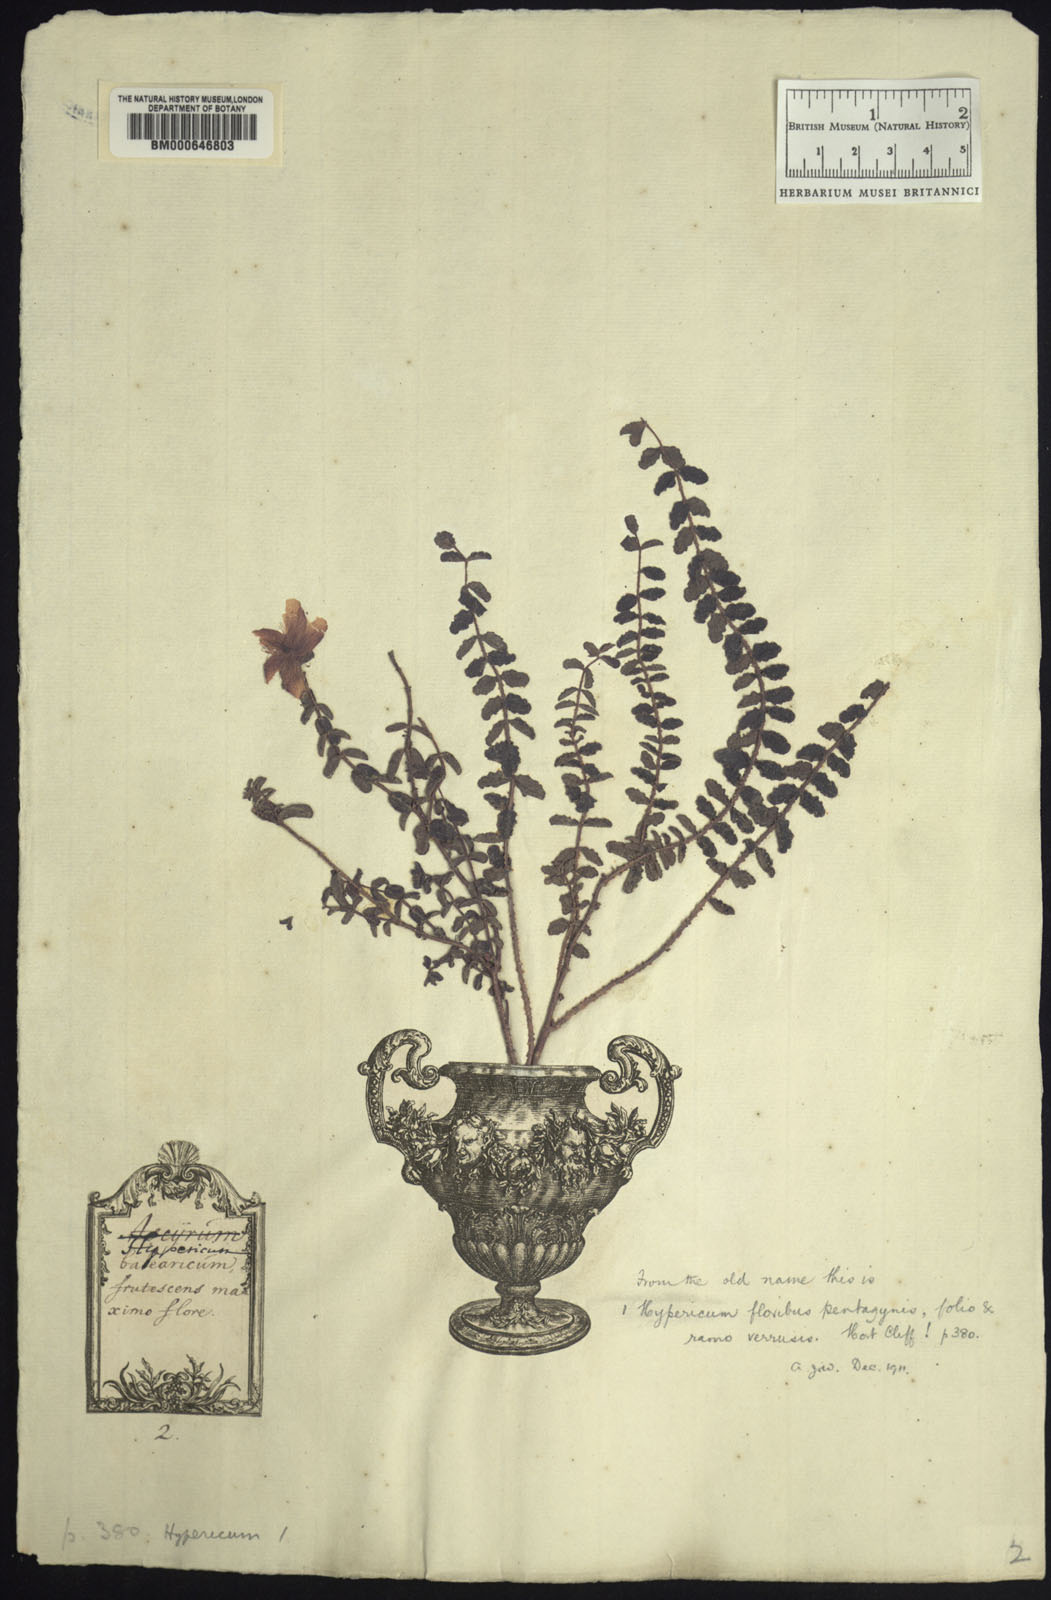 THE NATURAL HISTORY MUSEUM, LONDON
DEPARTMENT OF BOTANY
BM000646803
1 2
BRITISH MUSEUM (NATURAL HISTORY)
1 2 3 4 5
HERBARIUM MUSEI BRITANNICI
Ascÿrum
Hypericum
balearicum,
frutescens ma
ximo flore.
2.
From the old name this is
1 Hypericum floribus pentagynis, folio &
ramo verrusis. Hort Cliff! p 380.
Dec. 1911.
p. 380. Hypericum 1
2